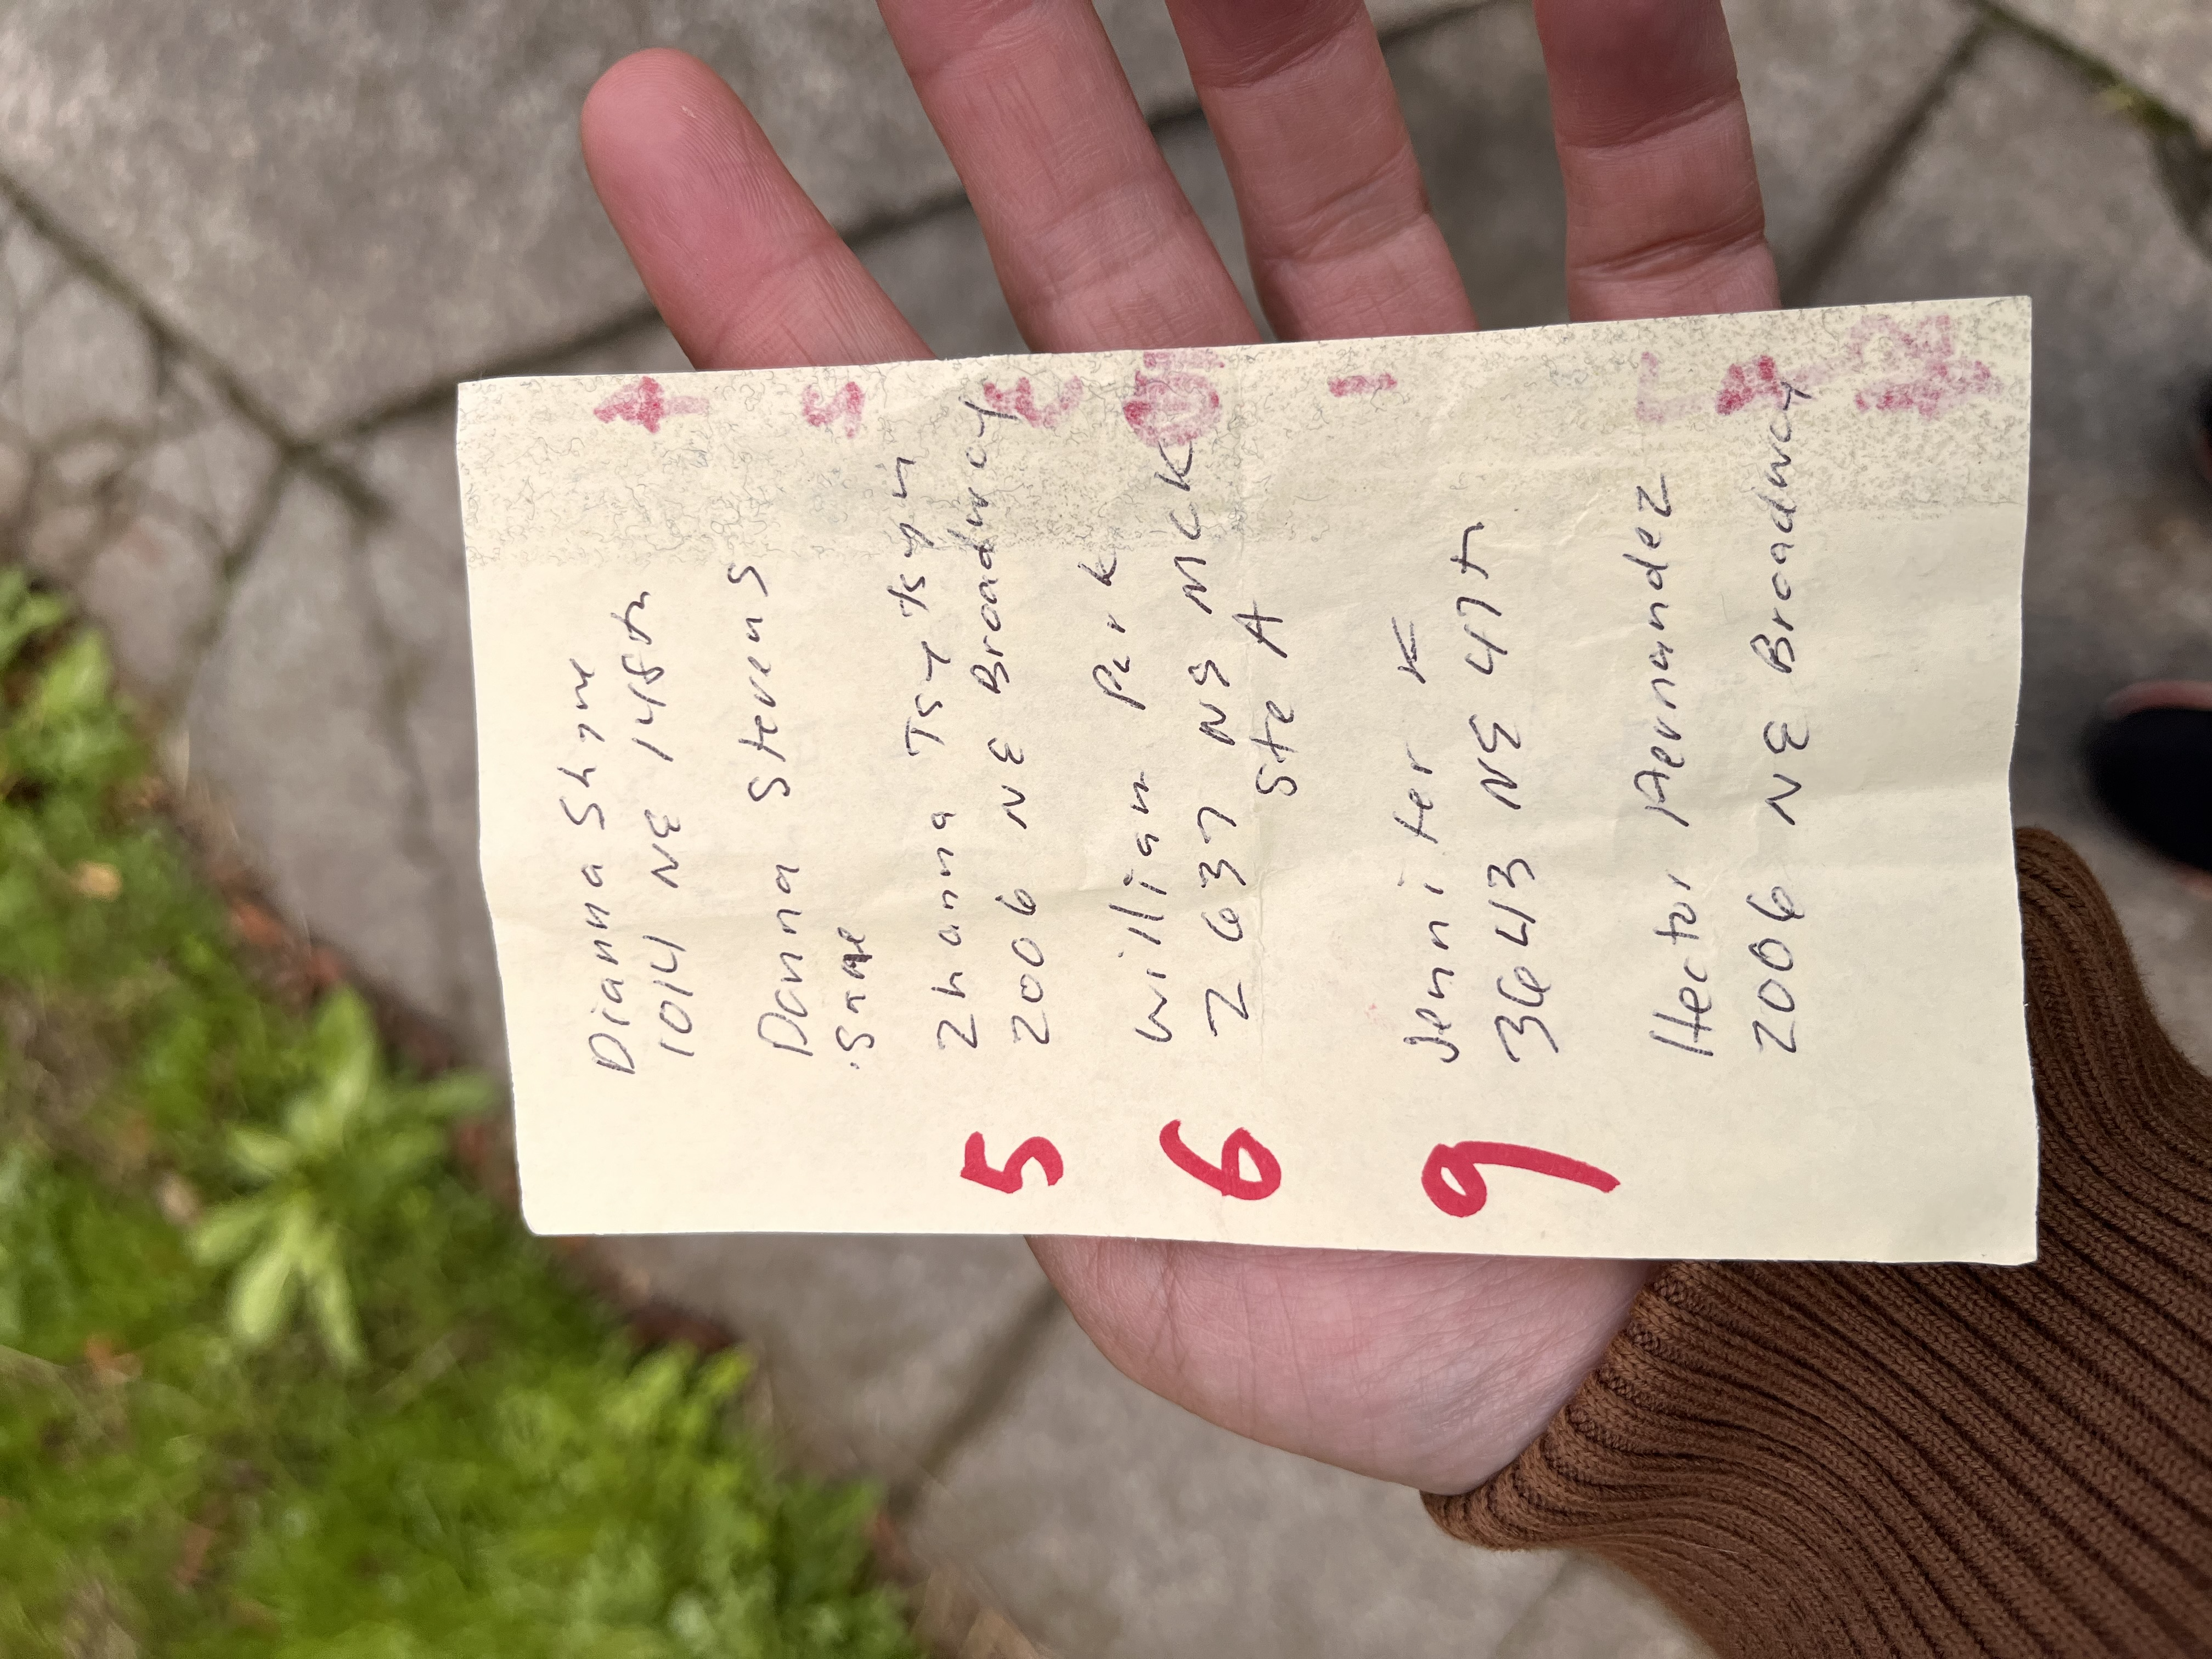 Dianna Shyne
1014 NE 148th
Danna Stevens
Same
5 Zhanna Tsytsyn
2006 NE Broadway
6 William Park
2637 NE MCK
Ste A
9 Jennifer K
3643 NE 47th
Hector Hernandez
2006 NE Broadway